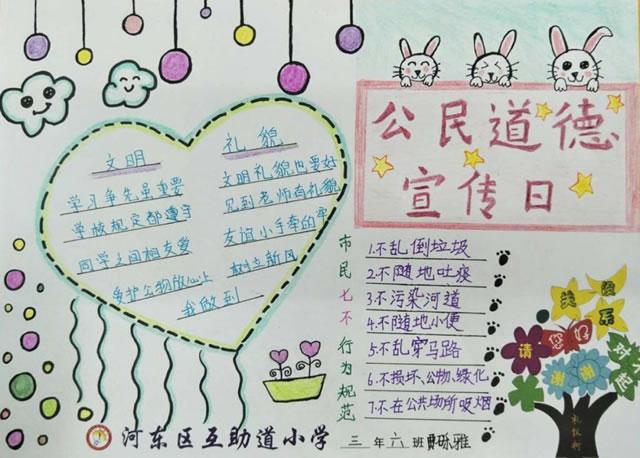 公民道德
宣传日
文明 礼貌
学习争先虽重要
学校规定都遵守
同学之间相友爱
爱护公物放心上
文明礼貌也要好
见到老师有礼貌
友谊小手牵的牢
树立新风
我做到
市民七不行为规范
1.不乱倒垃圾
2.不随地吐痰
3.不污染河道
4.不随地小便
5.不乱穿马路
6.不损坏公物、绿化
7.不在公共场所吸烟
请
您好
谢谢
对不起
美
河东区互助道小学 三年六班